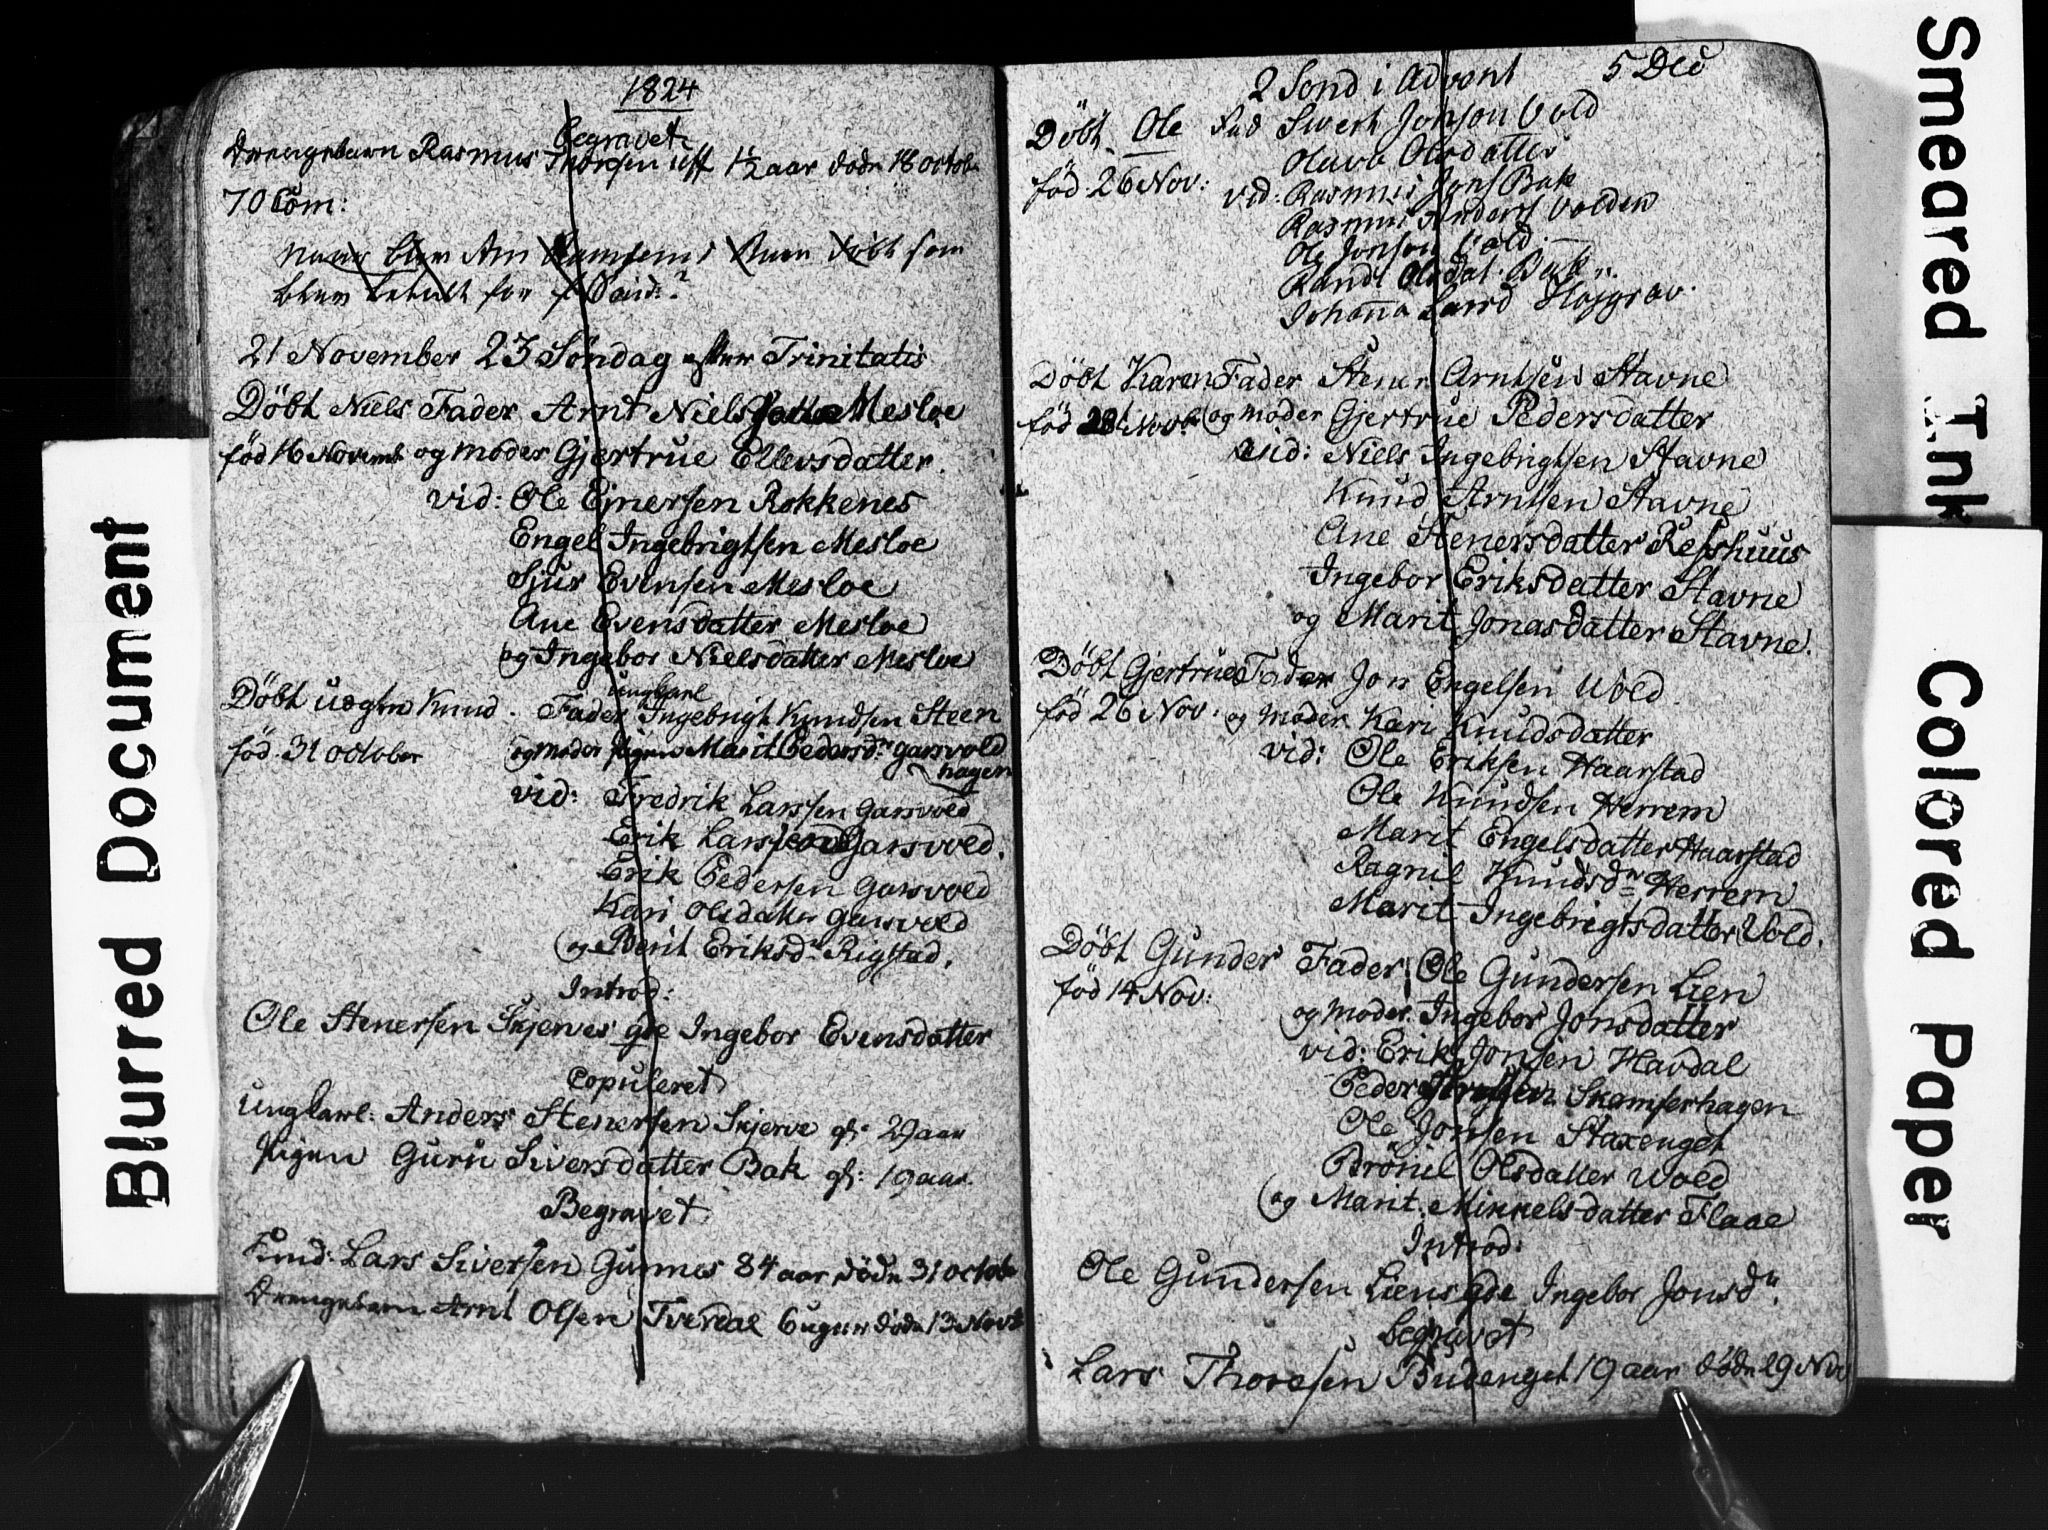 1824
Begravet
Drengebarn Rasmus Thorsen 1½ aar døde 18 octob
70 Com:
blev som
blev for
21 November 23 Søndag efter Trinitatis
Döbt Niels Fader Arnt Niels Mesloe
föd 16 Novemb og moder Gjertrue Ellevsdatter.
vid: Ole Ejnersen Rokkenes
Engel Ingebrigtsen Mesloe
Sjur Evensen Mesloe
Ane Evensdatter Mesloe
og Ingebor Nielsdatter Mesloe
ungkarl
Döbt uægte Knud. Fader Ingebrigt Knudsen Steen
föd 31 october og moder pigen Marit Pedersdr garsvold
hagen
vid: Fredrik Larssen Garsvold
Erik Larssen Garsvold.
Erik Pedersen Garsvold
Kari Olsdatter Garsvold
og Berit Eriksdr Rigstad.
Introd:
Ole Stenersen Skjerves qde Ingebor Evensdatter
Copuleret
Ungkarl: Anders Stenersen Skjerve gl: 29 aar
Pigen Guru Siversdatter Bak gl: 19 aar
Begravet
Lars Siversen Gunnes 84 aar döde 31 octob
Drengebarn Arnt Olsen Tverdal 6 uger döde 13 Novb
2 Sond i Advent 5 Dec
Döbt Ole Fad Sivert Jonson Vold
Olava Olsdatter
föd 26 Nov: vid: Rasmus Jons Bak
Rasmus Anders Volden
Ole Jonson Vold
Randi Olsdat. Bak
Johanna Larsd Hojgrav
Döbt Karen Fader Stener Arntsen Stavne
föd Novb og moder Gjertrue Pedersdatter
vid: Niels Ingebrigtsen Stavne
Knud Arntsen Stavne
Ane Stenersdatter Resshuus
Ingebor Eriksdatter Stavne
og Marit Jonasdatter Stavne.
Döbt Gjertrue Fader Jon Engelsen Wold
föd 26 Nov: og moder Kari Knudsdatter
vid: Ole Eriksen Haarstad
Ole Knudsen Herrem
Marit Engelsdatter Haarstad
Ragnil Knudsdr Herrem
Marit Ingebrigtsdatter Vold.
Döbt Gunder Fader: Ole Gundersen Lien
föd 14 Nov: og moder Ingebor Jonsdatter
vid: Erik Jonsen Havdal
Peder Skamferhagen
Ole Jonsen Staxenget
Bröniel Olsdatter Wold
og Marit Mikkelsdatter Flaae
Introd:
Ole Gundersen Liens qde Ingebor Jonsdr.
Begravet
Lars Thoresen Budenget 19 aar döde 29 Nov
Blurred Document
Smeared Ink
Colored Paper